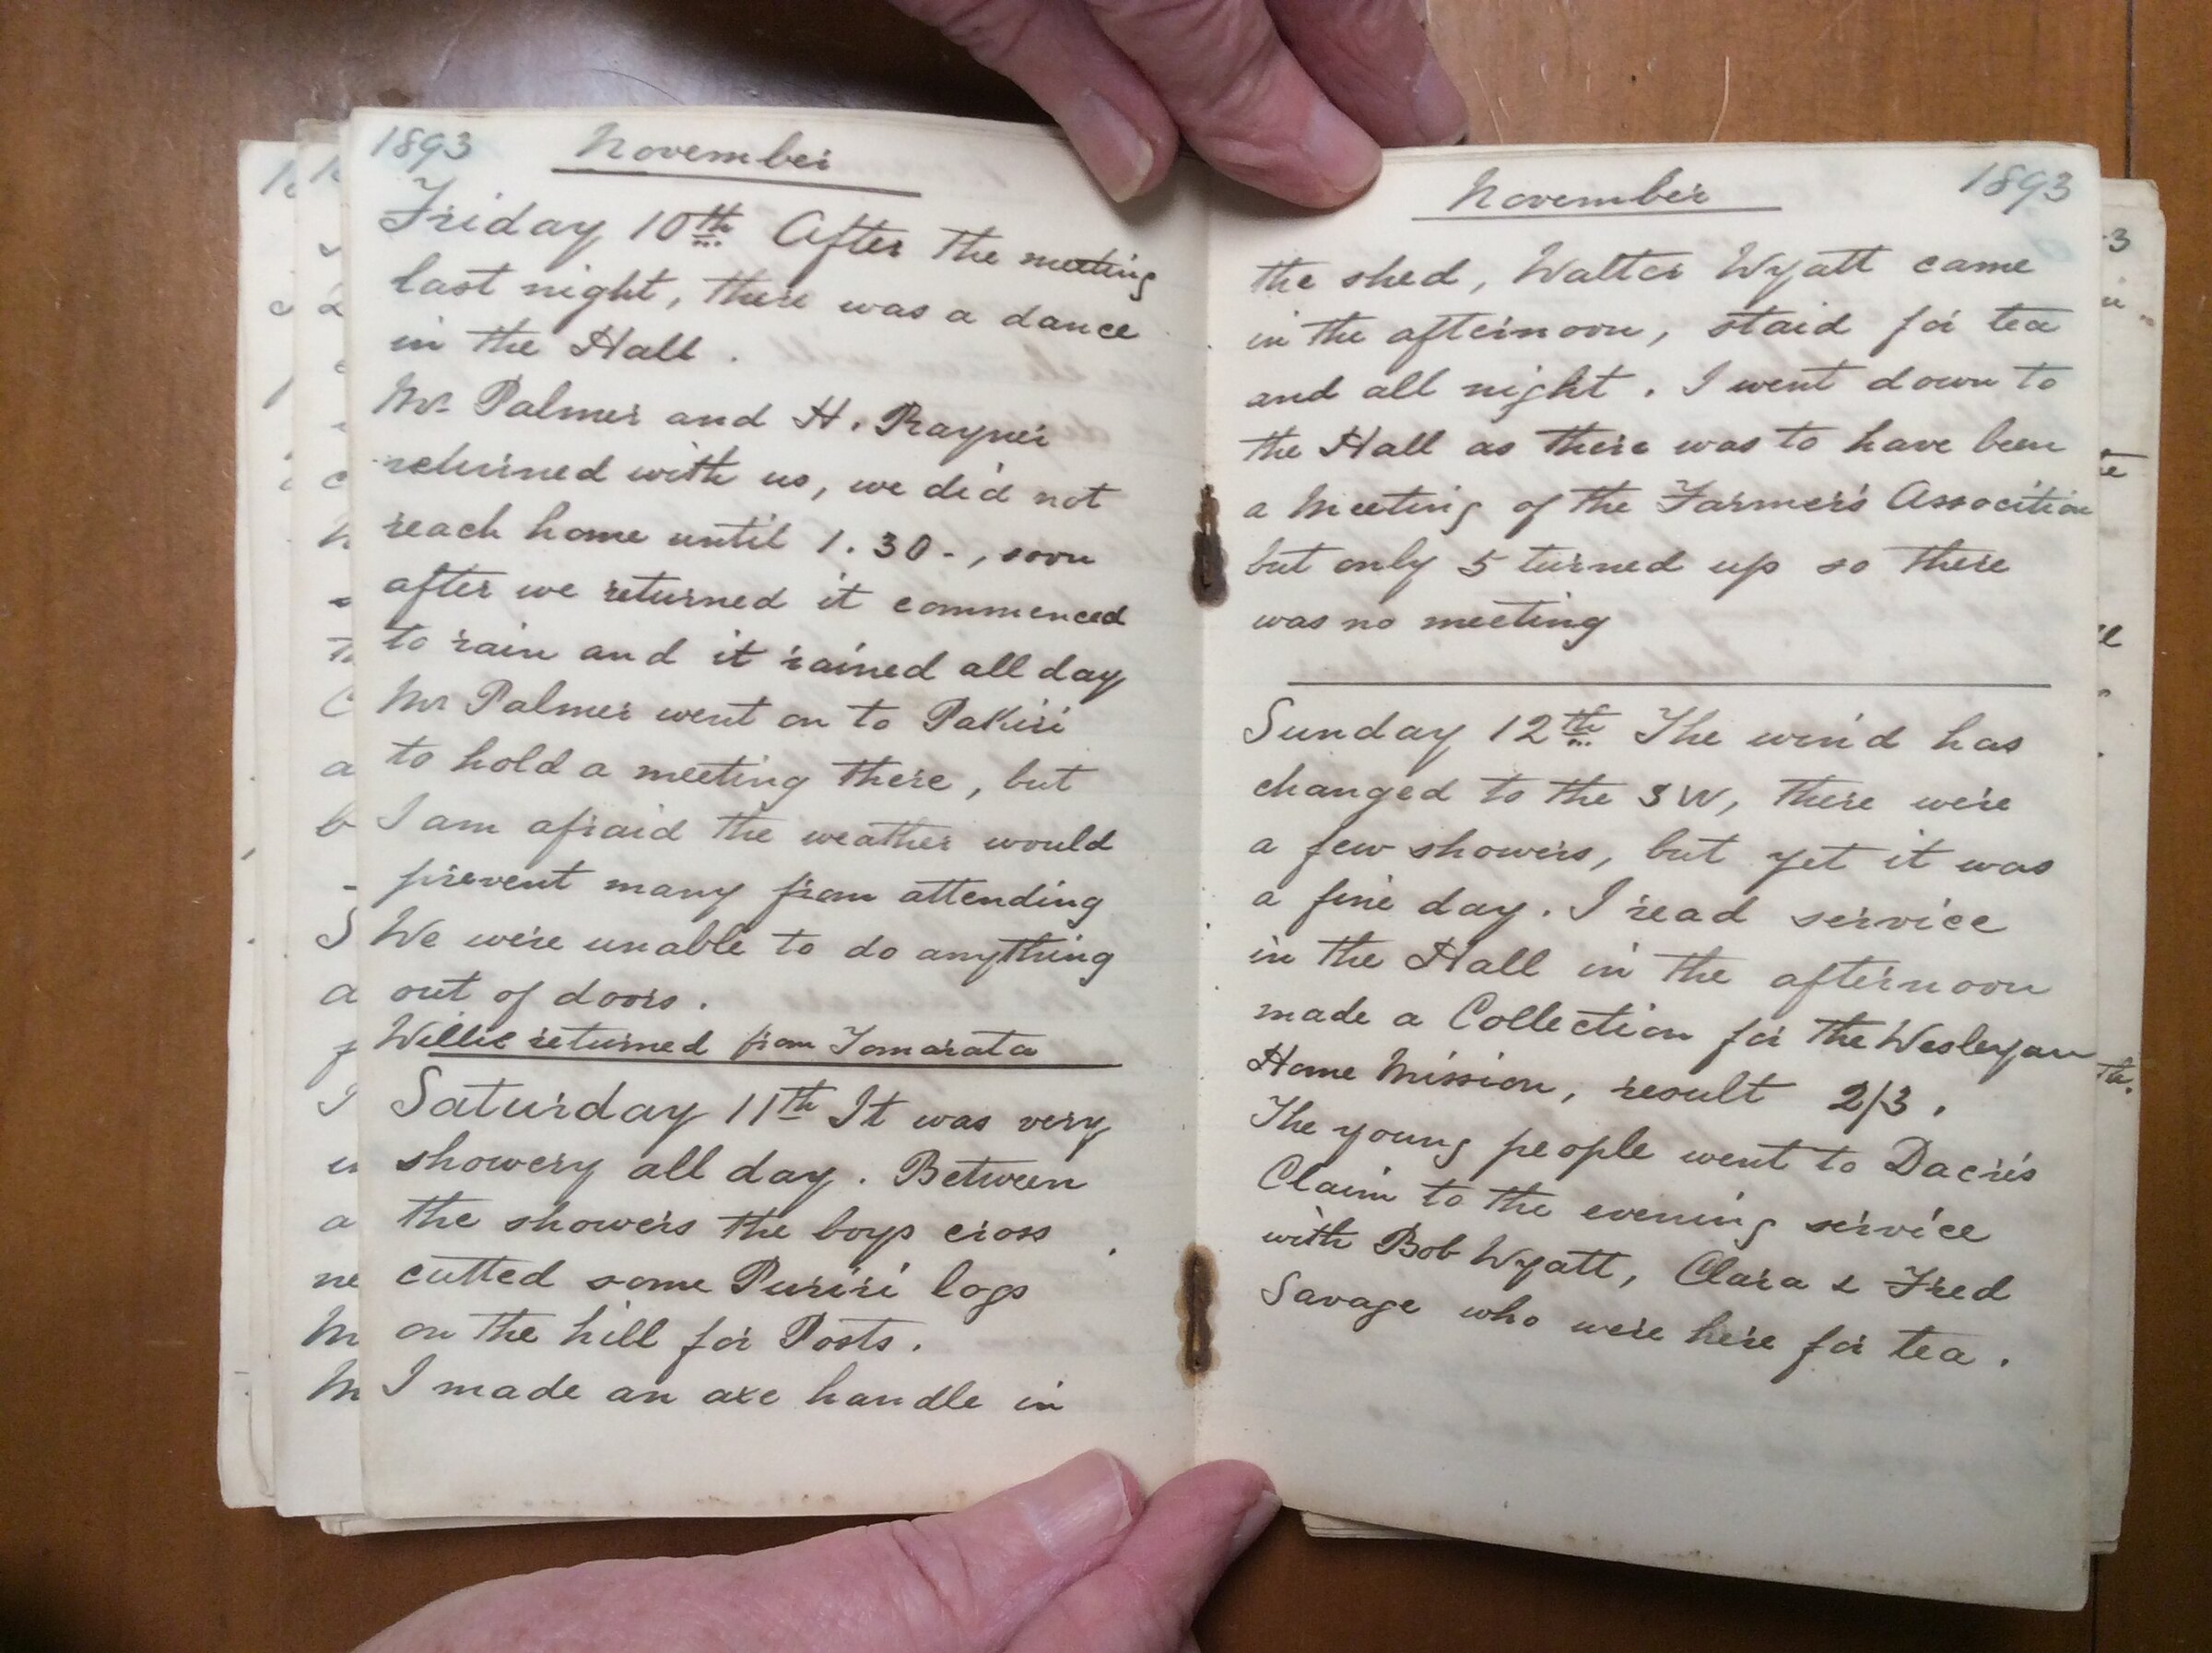 1893 November
Friday 10th After the meeting
last night, there was a dance
in the Hall.
Mr Palmer and H. Rayner
returned with us, we did not
reach home until 1.30-, soon
after we returned it commenced
to rain and it rained all day
Mr Palmer went on to Pakiri
to hold a meeting there, but
I am afraid the weather would
prevent many from attending
We were unable to do anything
out of doors.
Willie returned from Tomarata
Saturday 11th It was very
showery all day. Between
the showers the boys cross
cutted some Puriri logs
on the hill for Posts.
I made an axe handle in
November 1893
the shed, Walter Wyatt came
in the afternoon, staid for tea
and all night. I went down to
the Hall as there was to have been
a Meeting of the Farmer's Assocition
but only 5 turned up so there
was no meeting
Sunday 12th The wind has
changed to the SW, there were
a few showers, but yet it was
a fine day. I read service
in the Hall in the afternoon
made a Collection for the Wesleyan
Home Mission, result 2/3.
The young people went to Dacre's
Claim to the evening service
with Bob Wyatt, Clara & Fred
Savage who were here for tea.